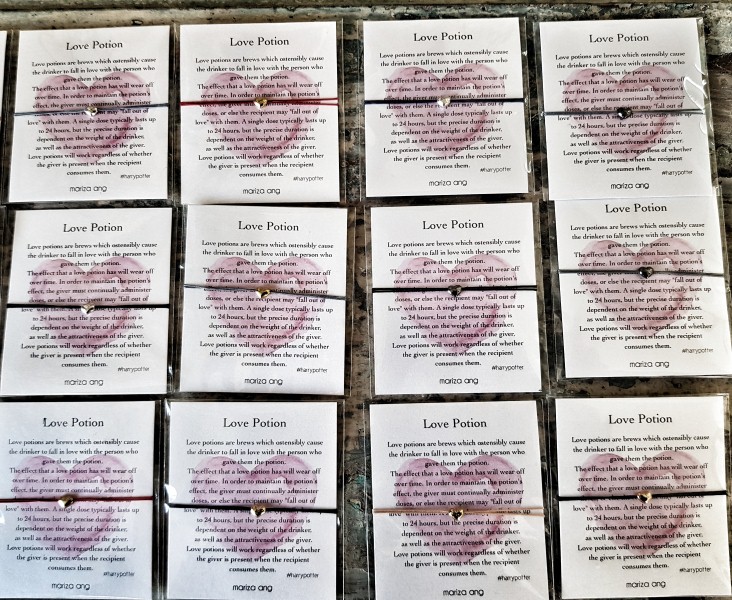 Love Potion
Love potions are brews which ostensibly cause
the drinker to fall in love with the person who
gave them the potion.
The effect that a love potion has will wear off
over time. In order to maintain the potion's
effect, the giver must continually administer
doses, or else the recipient may "fall out of
love" with them. A single dose typically lasts up
to 24 hours, but the precise duration is
dependent on the weight of the drinker,
as well as the attractiveness of the giver.
Love potions will work regardless of whether
the giver is present when the recipient
consumes them.
#harrypotter
mariza ang
Love Potion
Love potions are brews which ostensibly cause
the drinker to fall in love with the person who
gave them the potion.
The effect that a love potion has will wear off
over time. In order to maintain the potion's
effect, the giver must continually administer
doses, or else the recipient may "fall out of
love" with them. A single dose typically lasts up
to 24 hours, but the precise duration is
dependent on the weight of the drinker,
as well as the attractiveness of the giver.
Love potions will work regardless of whether
the giver is present when the recipient
consumes them.
#harrypotter
mariza ang
Love Potion
Love potions are brews which ostensibly cause
the drinker to fall in love with the person who
gave them the potion.
The effect that a love potion has will wear off
over time. In order to maintain the potion's
effect, the giver must continually administer
doses, or else the recipient may "fall out of
love" with them. A single dose typically lasts up
to 24 hours, but the precise duration is
dependent on the weight of the drinker,
as well as the attractiveness of the giver.
Love potions will work regardless of whether
the giver is present when the recipient
consumes them.
#harrypotter
mariza ang
Love Potion
Love potions are brews which ostensibly cause
the drinker to fall in love with the person who
gave them the potion.
The effect that a love potion has will wear off
over time. In order to maintain the potion's
effect, the giver must continually administer
doses, or else the recipient may "fall out of
love" with them. A single dose typically lasts up
to 24 hours, but the precise duration is
dependent on the weight of the drinker,
as well as the attractiveness of the giver.
Love potions will work regardless of whether
the giver is present when the recipient
consumes them.
#harrypotter
mariza ang
Love Potion
Love potions are brews which ostensibly cause
the drinker to fall in love with the person who
gave them the potion.
The effect that a love potion has will wear off
over time. In order to maintain the potion's
effect, the giver must continually administer
doses, or else the recipient may "fall out of
love" with them. A single dose typically lasts up
to 24 hours, but the precise duration is
dependent on the weight of the drinker,
as well as the attractiveness of the giver.
Love potions will work regardless of whether
the giver is present when the recipient
consumes them.
#harrypotter
mariza ang
Love Potion
Love potions are brews which ostensibly cause
the drinker to fall in love with the person who
gave them the potion.
The effect that a love potion has will wear off
over time. In order to maintain the potion's
doses, or else the recipient may "fall out of
love" with them. A single dose typically lasts up
to 24 hours, but the precise duration is
dependent on the weight of the drinker,
as well as the attractiveness of the giver.
Love potions will work regardless of whether
the giver is present when the recipient
consumes them.
#harrypotter
mariza ang
Love Potion
Love potions are brews which ostensibly cause
the drinker to fall in love with the person who
gave them the potion.
The effect that a love potion has will wear off
over time. In order to maintain the potion's
doses, or else the recipient may "fall out of
love" with them. A single dose typically lasts up
to 24 hours, but the precise duration is
dependent on the weight of the drinker,
as well as the attractiveness of the giver.
Love potions will work regardless of whether
the giver is present when the recipient
consumes them.
#harrypotter
mariza ang
Love Potion
Love potions are brews which ostensibly cause
the drinker to fall in love with the person who
gave them the potion.
The effect that a love potion has will wear off
over time. In order to maintain the potion's
effect, the giver must continually administer
doses, or else the recipient may "fall out of
love" with them. A single dose typically lasts up
to 24 hours, but the precise duration is
dependent on the weight of the drinker,
as well as the attractiveness of the giver.
Love potions will work regardless of whether
the giver is present when the recipient
consumes them.
#harrypotter
mariza ang
Love Potion
Love potions are brews which ostensibly cause
the drinker to fall in love with the person who
gave them the potion.
The effect that a love potion has will wear off
over time. In order to maintain the potion's
effect, the giver must continually administer
love" with them. A single dose typically lasts up
to 24 hours, but the precise duration is
dependent on the weight of the drinker,
as well as the attractiveness of the giver.
Love potions will work regardless of whether
the giver is present when the recipient
consumes them.
#harrypotter
mariza ang
Love Potion
Love potions are brews which ostensibly cause
the drinker to fall in love with the person who
gave them the potion.
The effect that a love potion has will wear off
over time. In order to maintain the potion's
effect, the giver must continually administer
doses, or else the recipient may "fall out of
to 24 hours, but the precise duration is
dependent on the weight of the drinker,
as well as the attractiveness of the giver.
Love potions will work regardless of whether
the giver is present when the recipient
consumes them.
#harrypotter
mariza ang
Love Potion
Love potions are brews which ostensibly cause
the drinker to fall in love with the person who
gave them the potion.
The effect that a love potion has will wear off
over time. In order to maintain the potion's
effect, the giver must continually administer
doses, or else the recipient may "fall out of
to 24 hours, but the precise duration is
dependent on the weight of the drinker,
as well as the attractiveness of the giver.
Love potions will work regardless of whether
the giver is present when the recipient
consumes them.
#harrypotter
mariza ang
Love Potion
Love potions are brews which ostensibly cause
the drinker to fall in love with the person who
gave them the potion.
The effect that a love potion has will wear off
over time. In order to maintain the potion's
doses, or else the recipient may "fall out of
love" with them. A single dose typically lasts up
to 24 hours, but the precise duration is
dependent on the weight of the drinker,
as well as the attractiveness of the giver.
Love potions will work regardless of whether
the giver is present when the recipient
consumes them.
#harrypotter
mariza ang